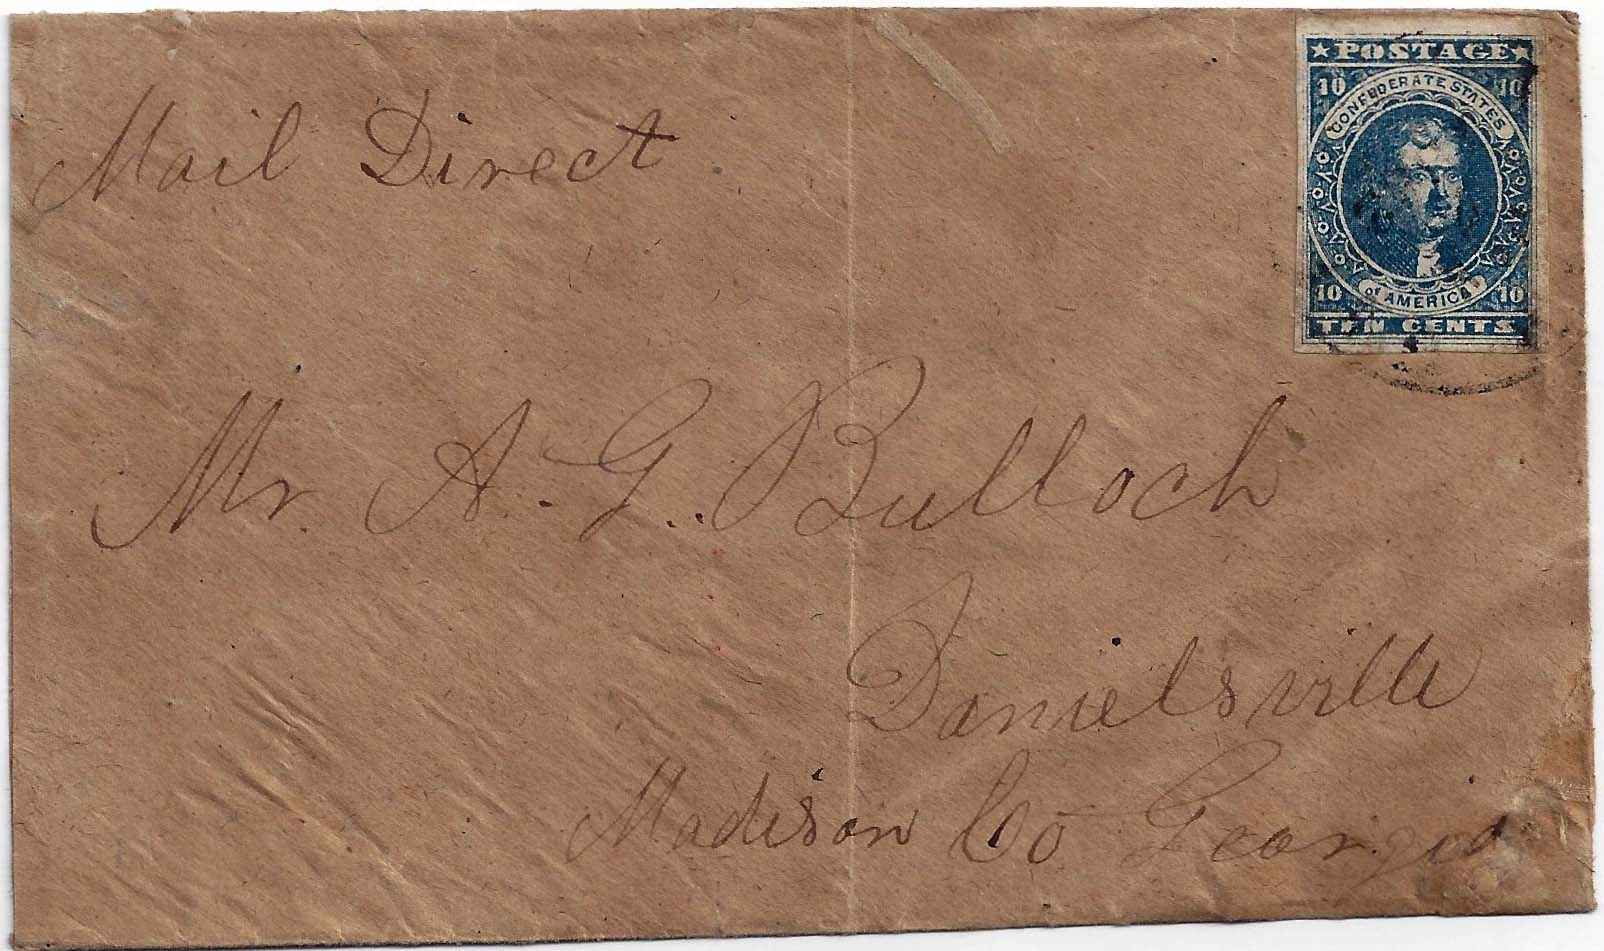 Mail Direct
★ POSTAGE ★
10 10
CONFEDERATE STATES
of AMERICA
10 10
TEN CENTS
Mr. A. G. Bulloch
Danielsville
Madison Co Georgia